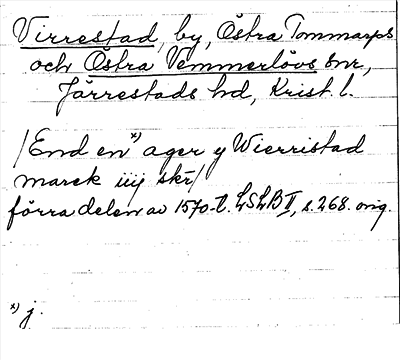 Virrestad, by, Östra Tommarps
och Östra Vemmerlövs snr,
Järrestads hd, Krist. l.
/End en *) ager y Wierristad
marck iiij skr/
förra delen av 1570-t. LSLB II, s. 268. orig.
*) j.